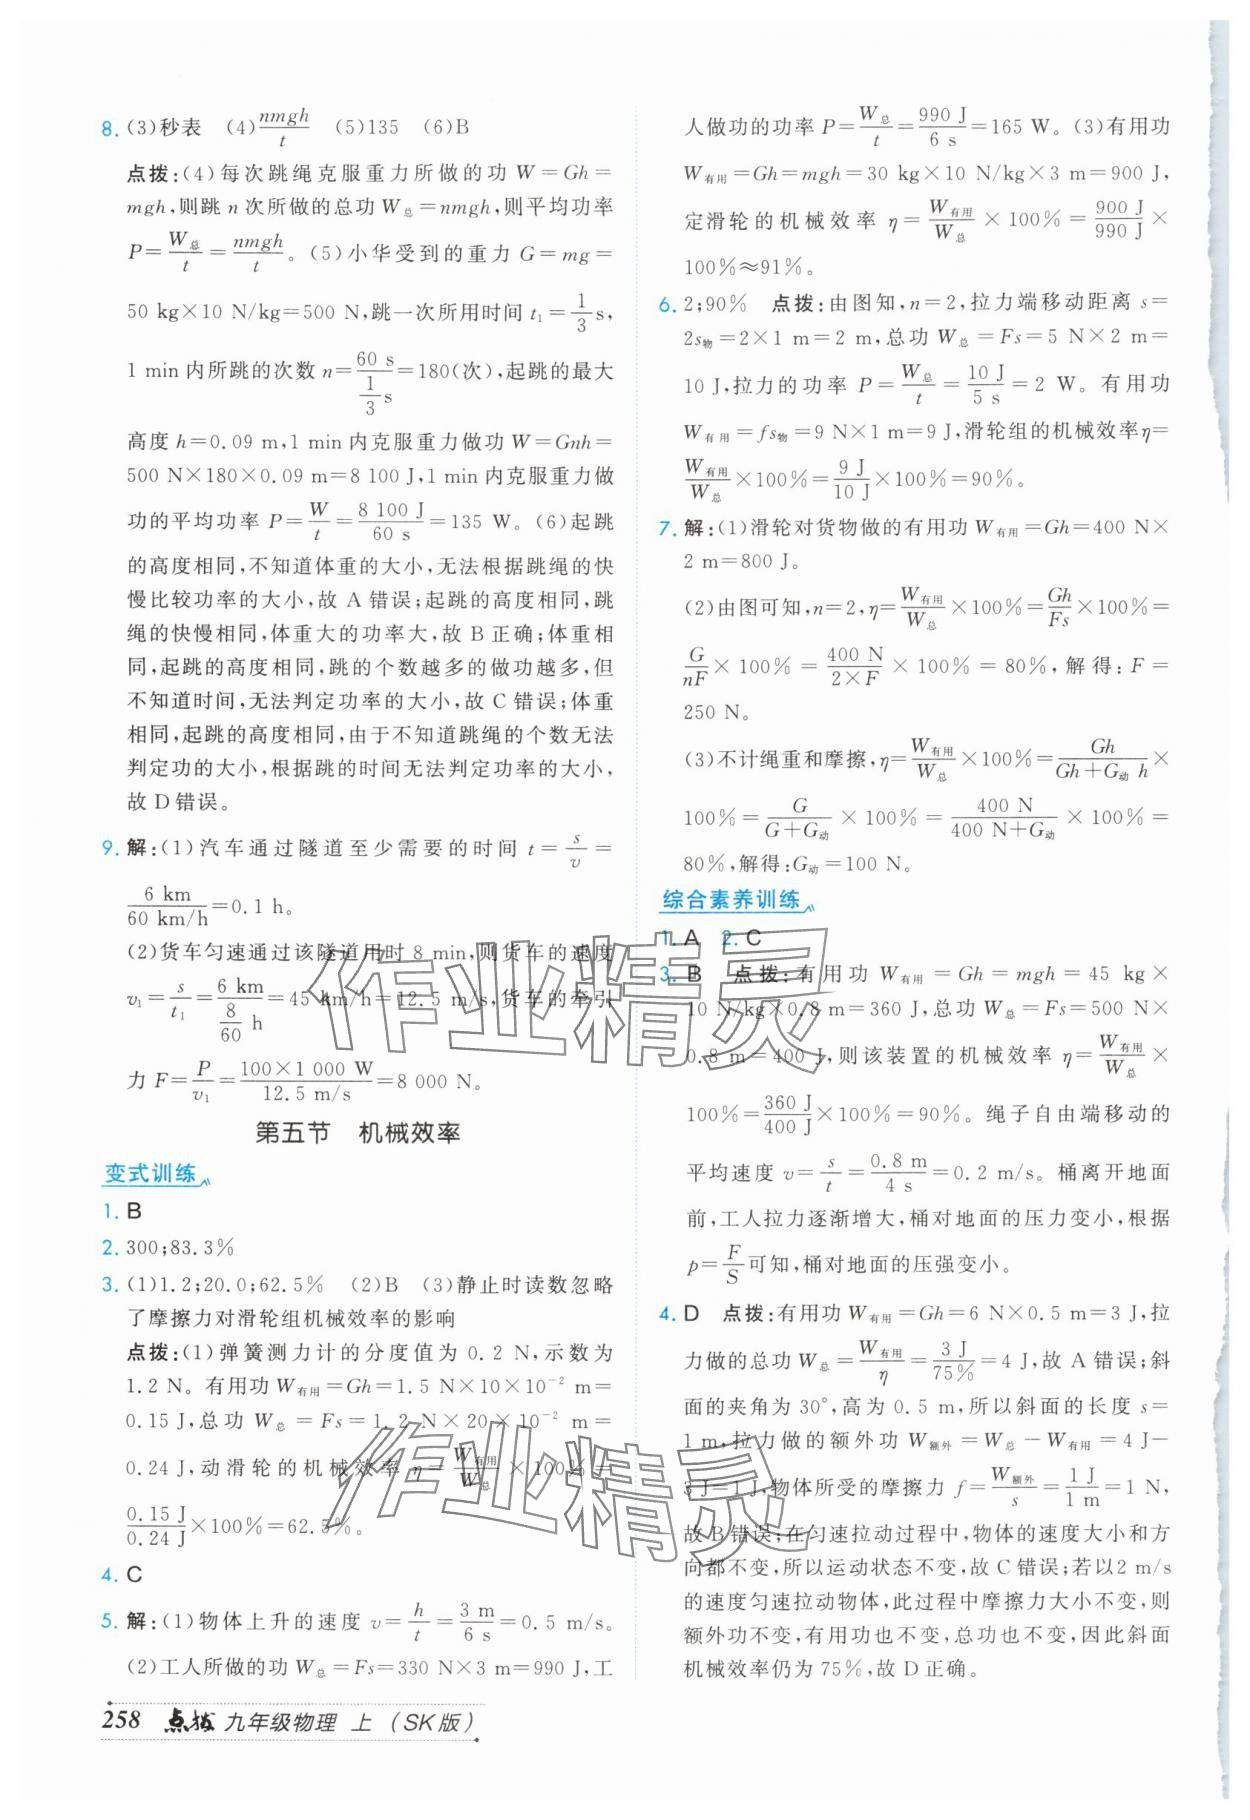 8. (3)秒表 (4)nmgh/t (5)135 (6)B
点拨:(4)每次跳绳克服重力所做的功 W=Gh=
mgh,则跳 n 次所做的总功 W总=nmgh,则平均功率
P=W总/t=nmgh/t。(5)小华受到的重力 G=mg=
50 kg×10 N/kg=500 N,跳一次所用时间 t₁=1/3 s,
1 min内所跳的次数 n=60 s/(1/3 s)=180(次),起跳的最大
高度 h=0.09 m,1 min内克服重力做功 W=Gnh=
500 N×180×0.09 m=8 100 J,1 min内克服重力做
功的平均功率 P=W/t=8 100 J/60 s=135 W。(6)起跳
的高度相同,不知道体重的大小,无法根据跳绳的快
慢比较功率的大小,故 A 错误;起跳的高度相同,跳
绳的快慢相同,体重大的功率大,故 B 正确;体重相
同,起跳的高度相同,跳的个数越多的做功越多,但
不知道时间,无法判定功率的大小,故 C 错误;体重
相同,起跳的高度相同,由于不知道跳绳的个数无法
判定功的大小,根据跳的时间无法判定功率的大小,
故 D 错误。
9. 解:(1)汽车通过隧道至少需要的时间 t=s/v=
6 km/60 km/h=0.1 h。
(2)货车匀速通过该隧道用时 8 min,则货车的速度
v₁=s/t₁=6 km/(8/60 h)=45 km/h=12.5 m/s,货车的牵引
力 F=P/v₁=100×1 000 W/12.5 m/s=8 000 N。
第五节 机械效率
变式训练
1. B
2. 300;83.3%
3. (1)1.2;20.0;62.5% (2)B (3)静止时读数忽略
了摩擦力对滑轮组机械效率的影响
点拨:(1)弹簧测力计的分度值为 0.2 N,示数为
1.2 N。有用功 W有用=Gh=1.5 N×10×10⁻² m=
0.15 J,总功 W总=Fs=1.2 N×20×10⁻² m=
0.24 J,动滑轮的机械效率 η=W有用/W总×100%=
0.15 J/0.24 J×100%=62.5%。
4. C
5. 解:(1)物体上升的速度 v=h/t=3 m/6 s=0.5 m/s。
(2)工人所做的功 W总=Fs=330 N×3 m=990 J,工
258 点拨 九年级物理 上 (SK版)
人做功的功率 P=W总/t=990 J/6 s=165 W。(3)有用功
W有用=Gh=mgh=30 kg×10 N/kg×3 m=900 J,
定滑轮的机械效率 η=W有用/W总×100%=900 J/990 J×
100%≈91%。
6. 2;90% 点拨:由图知,n=2,拉力端移动距离 s=
2s物=2×1 m=2 m,总功 W总=Fs=5 N×2 m=
10 J,拉力的功率 P=W总/t=10 J/5 s=2 W。有用功
W有用=fs物=9 N×1 m=9 J,滑轮组的机械效率η=
W有用/W总×100%=9 J/10 J×100%=90%。
7. 解:(1)滑轮对货物做的有用功 W有用=Gh=400 N×
2 m=800 J。
(2)由图可知,n=2,η=W有用/W总×100%=Gh/Fs×100%=
G/nF×100%=400 N/2×F×100%=80%,解得:F=
250 N。
(3)不计绳重和摩擦,η=W有用/W总=Gh/Gh+G动h×
100%=G/G+G动×100%=400 N/400 N+G动×100%=
80%,解得:G动=100 N。
综合素养训练
1. A 2. C
3. B 点拨:有用功 W有用=Gh=mgh=45 kg×
10 N/kg×0.8 m=360 J,总功 W总=Fs=500 N×
0.8 m=400 J,则该装置的机械效率 η=W有用/W总×
100%=360 J/400 J×100%=90%。绳子自由端移动的
平均速度 v=s/t=0.8 m/4 s=0.2 m/s。桶离开地面
前,工人拉力逐渐增大,桶对地面的压力变小,根据
p=F/S可知,桶对地面的压强变小。
4. D 点拨:有用功 W有用=Gh=6 N×0.5 m=3 J,拉
力做的总功 W总=W有用/η=3 J/75%=4 J,故 A 错误;斜
面的夹角为 30°,高为 0.5 m,所以斜面的长度 s=
1 m,拉力做的额外功 W额外=W总-W有用=4 J-
3 J=1 J,物体所受的摩擦力 f=W额外/s=1 J/1 m=1 N,
故 B 错误;在匀速拉动过程中,物体的速度大小和方
向都不变,所以运动状态不变,故 C 错误;若以2 m/s
的速度匀速拉动物体,此过程中摩擦力大小不变,则
额外功不变,有用功也不变,总功也不变,因此斜面
机械效率仍为 75%,故 D 正确。
作业精灵
作业精灵